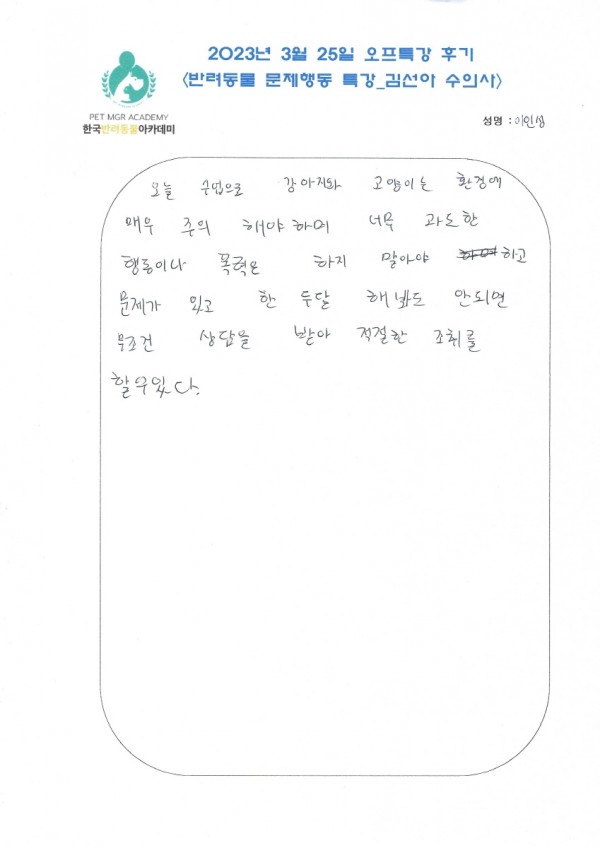 2023년 3월 25일 오프특강 후기
<반려동물 문제행동 특강_김선아 수의사>
PET MGR ACADEMY
한국반려동물아카데미
성명 : 이인성
오늘 수업으로 강아지와 고양이는 환경에
매우 주의 해야하며 너무 과도한
행동이나 폭력은 하지 말아야 하며 하고
문제가 있고 한 두달 해봐도 안되면
무조건 상담을 받아 적절한 조취를
할수있다.